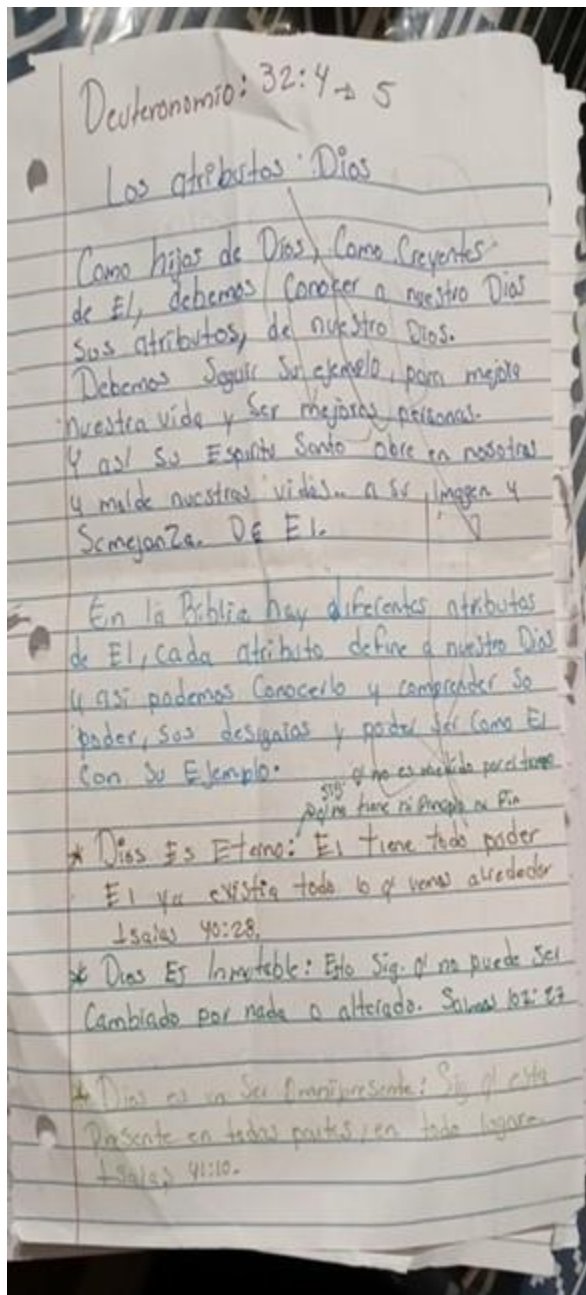 Deuteronomio: 32:4 → 5
Los atributos: Dios
Como hijos de Dios, Como Creyentes
de El, debemos Conocer a nuestro Dios
Sus atributos, de nuestro Dios.
Debemos Seguir Su ejemplo, para mejora
nuestra vida y Ser mejores personas.
Y así Su Espiritu Santo obre en nosotros
y molde nuestras vidas.. a Su Imagen y
Semejanza. DE El.
En la Biblia hay diferentes atributos
de El, cada atributo define a nuestro Dios
y asi podemos Conocerlo y comprender So
poder, sus designios y poder Ser Como El
Con Su Ejemplo.
q no es medido por el tiempo
no tiene ni Principio ni Fin
* Dios Es Eterno: El tiene todo poder
El ya existia todo lo q vemos alrededor
Isaias 40:28.
* Dios Es Inmutable: Esto Sig. q no puede Ser
Cambiado por nada o alterado. Salmos 102:27
* Dios es un Ser Omnipresente: Sig q esta
Presente en todas partes, en todo lugar
Isaias 41:10.